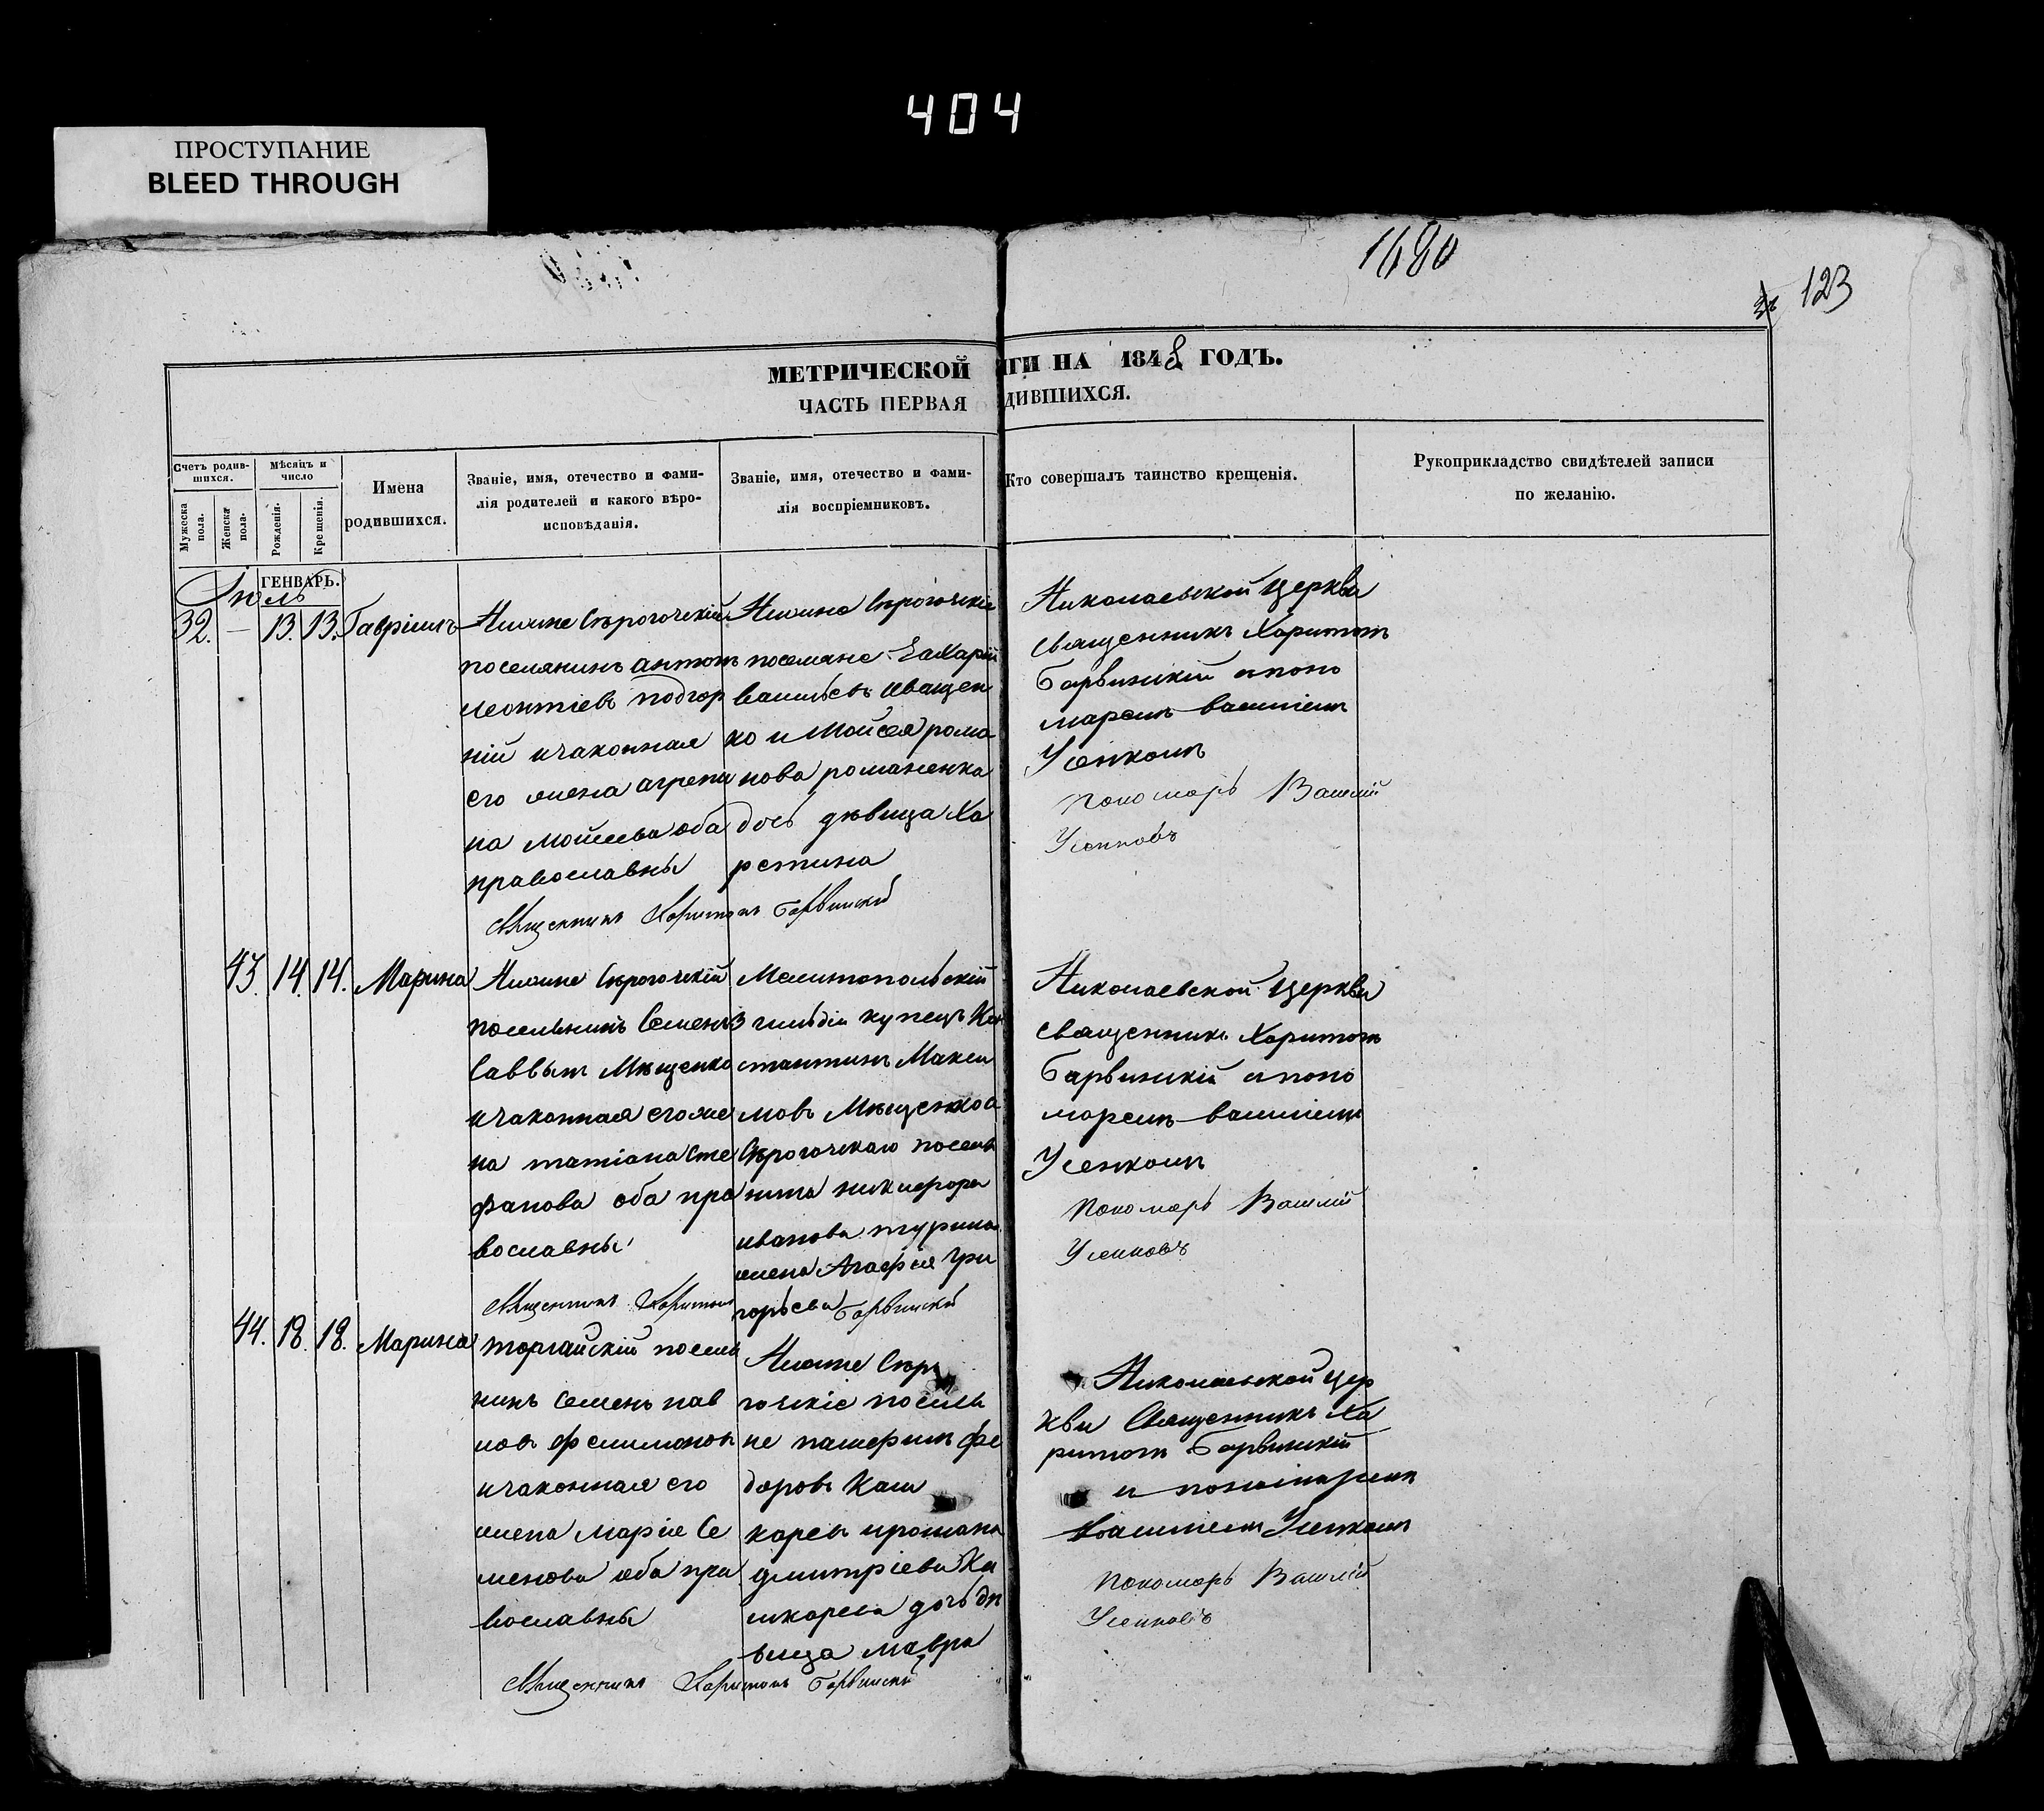 404
ПРОСТУПАНИЕ
BLEED THROUGH
1680
123
МЕТРИЧЕСКОЙ ИГИ НА 1848 ГОДЪ.
ЧАСТЬ ПЕРВАЯ ДИВШИХСЯ.
Счетъ родив-
шихся.
Мужеска пола.
Женска пола.
Мѣсяцъ и
число
Рожденія.
Крещенія.
Имена
родившихся.
Званіе, имя, отечество и фами-
лія родителей и какого вѣро-
исповѣданія.
Званіе, имя, отечество и фами-
лія воспріемниковъ.
Кто совершалъ таинство крещенія.
Рукоприкладство свидѣтелей записи
по желанію.
ГЕНВАРЬ.
Іюль
32. — 13. 13. Гавріилъ
Нижне Сѣрогочскій
поселянинъ антонъ
леонтіевъ подгор
ній изаконная
его жена агрепи
на Мойсеева оба
православны
Нижне Сѣрогочскіе
поселяне Захарій
васильевъ иващен
ко и Мойсея рома
нова романенка
дочь дѣвица Ха
ретина
Священникъ Харитонъ Барвинскій
Николаевской Церкви
священникъ Харитонъ
Барвинскій ипоно
маремъ василіемъ
Усенкомъ
Пономарь Василій
Усенковъ
43. 14. 14. Марина
Нижне Сѣрогочскій
поселянинъ Семенъ
Саввынъ Мищенко
изаконная егоже
на татіана Сте
фанова оба пра
вославны
Мелитопольскій
3 гильдіи купецъ Кон
стантинъ Макси
мовъ Мищенко и
Сѣрогочскаго поселя
нина никифора
иванова турина
жена Агафія Гри
горьева
Священникъ Харитонъ Барвинскій
Николаевской Церкви
священникъ Харитонъ
Барвинскій ипоно
маремъ василіемъ
Усенкомъ
Пономарь Василій
Усенковъ
44. 18. 18. Марина
торгайскій поселя
нинъ Семенъ пав
ловъ филимоновъ
изаконная его
жена марія Се
менова оба пра
вославны
Нижне Сѣро
гочскіе поселя
не
доровъ Каш
каревъ иромана
дмитріева Ка
шкарева дочь дѣ
вица мавра
Священникъ Харитонъ Барвинскій
Николаевской цер
кви Священникъ Ха
ритонъ Барвинскій
и пономаремъ
василіемъ Усенкомъ
Пономарь Василій
Усенковъ